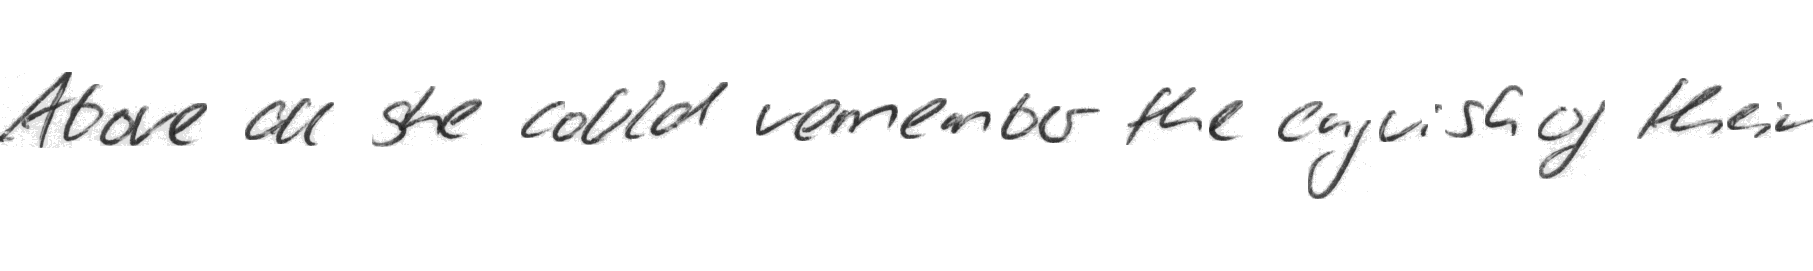 Above all she could remember the anguish of their